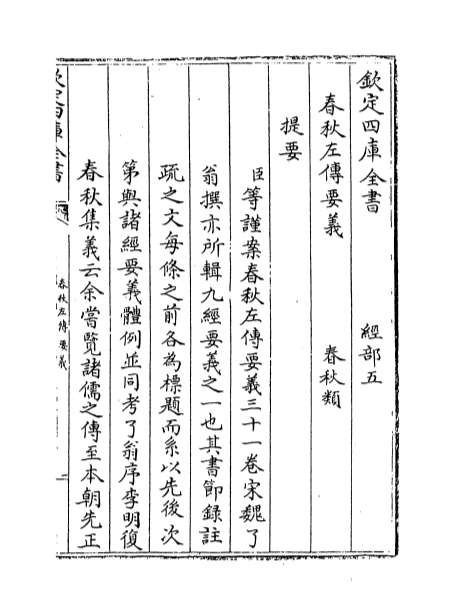 欽定四庫全書 經部五
春秋左傳要義 春秋類
提要
臣等謹案春秋左傳要義三十一卷宋魏了
翁撰亦所輯九經要義之一也其書節錄註
疏之文每條之前各為標題而系以先後次
第與諸經要義體例並同考了翁序李明復
春秋集義云余嘗覽諸儒之傳至本朝先正
欽定四庫全書
春秋左傳要義